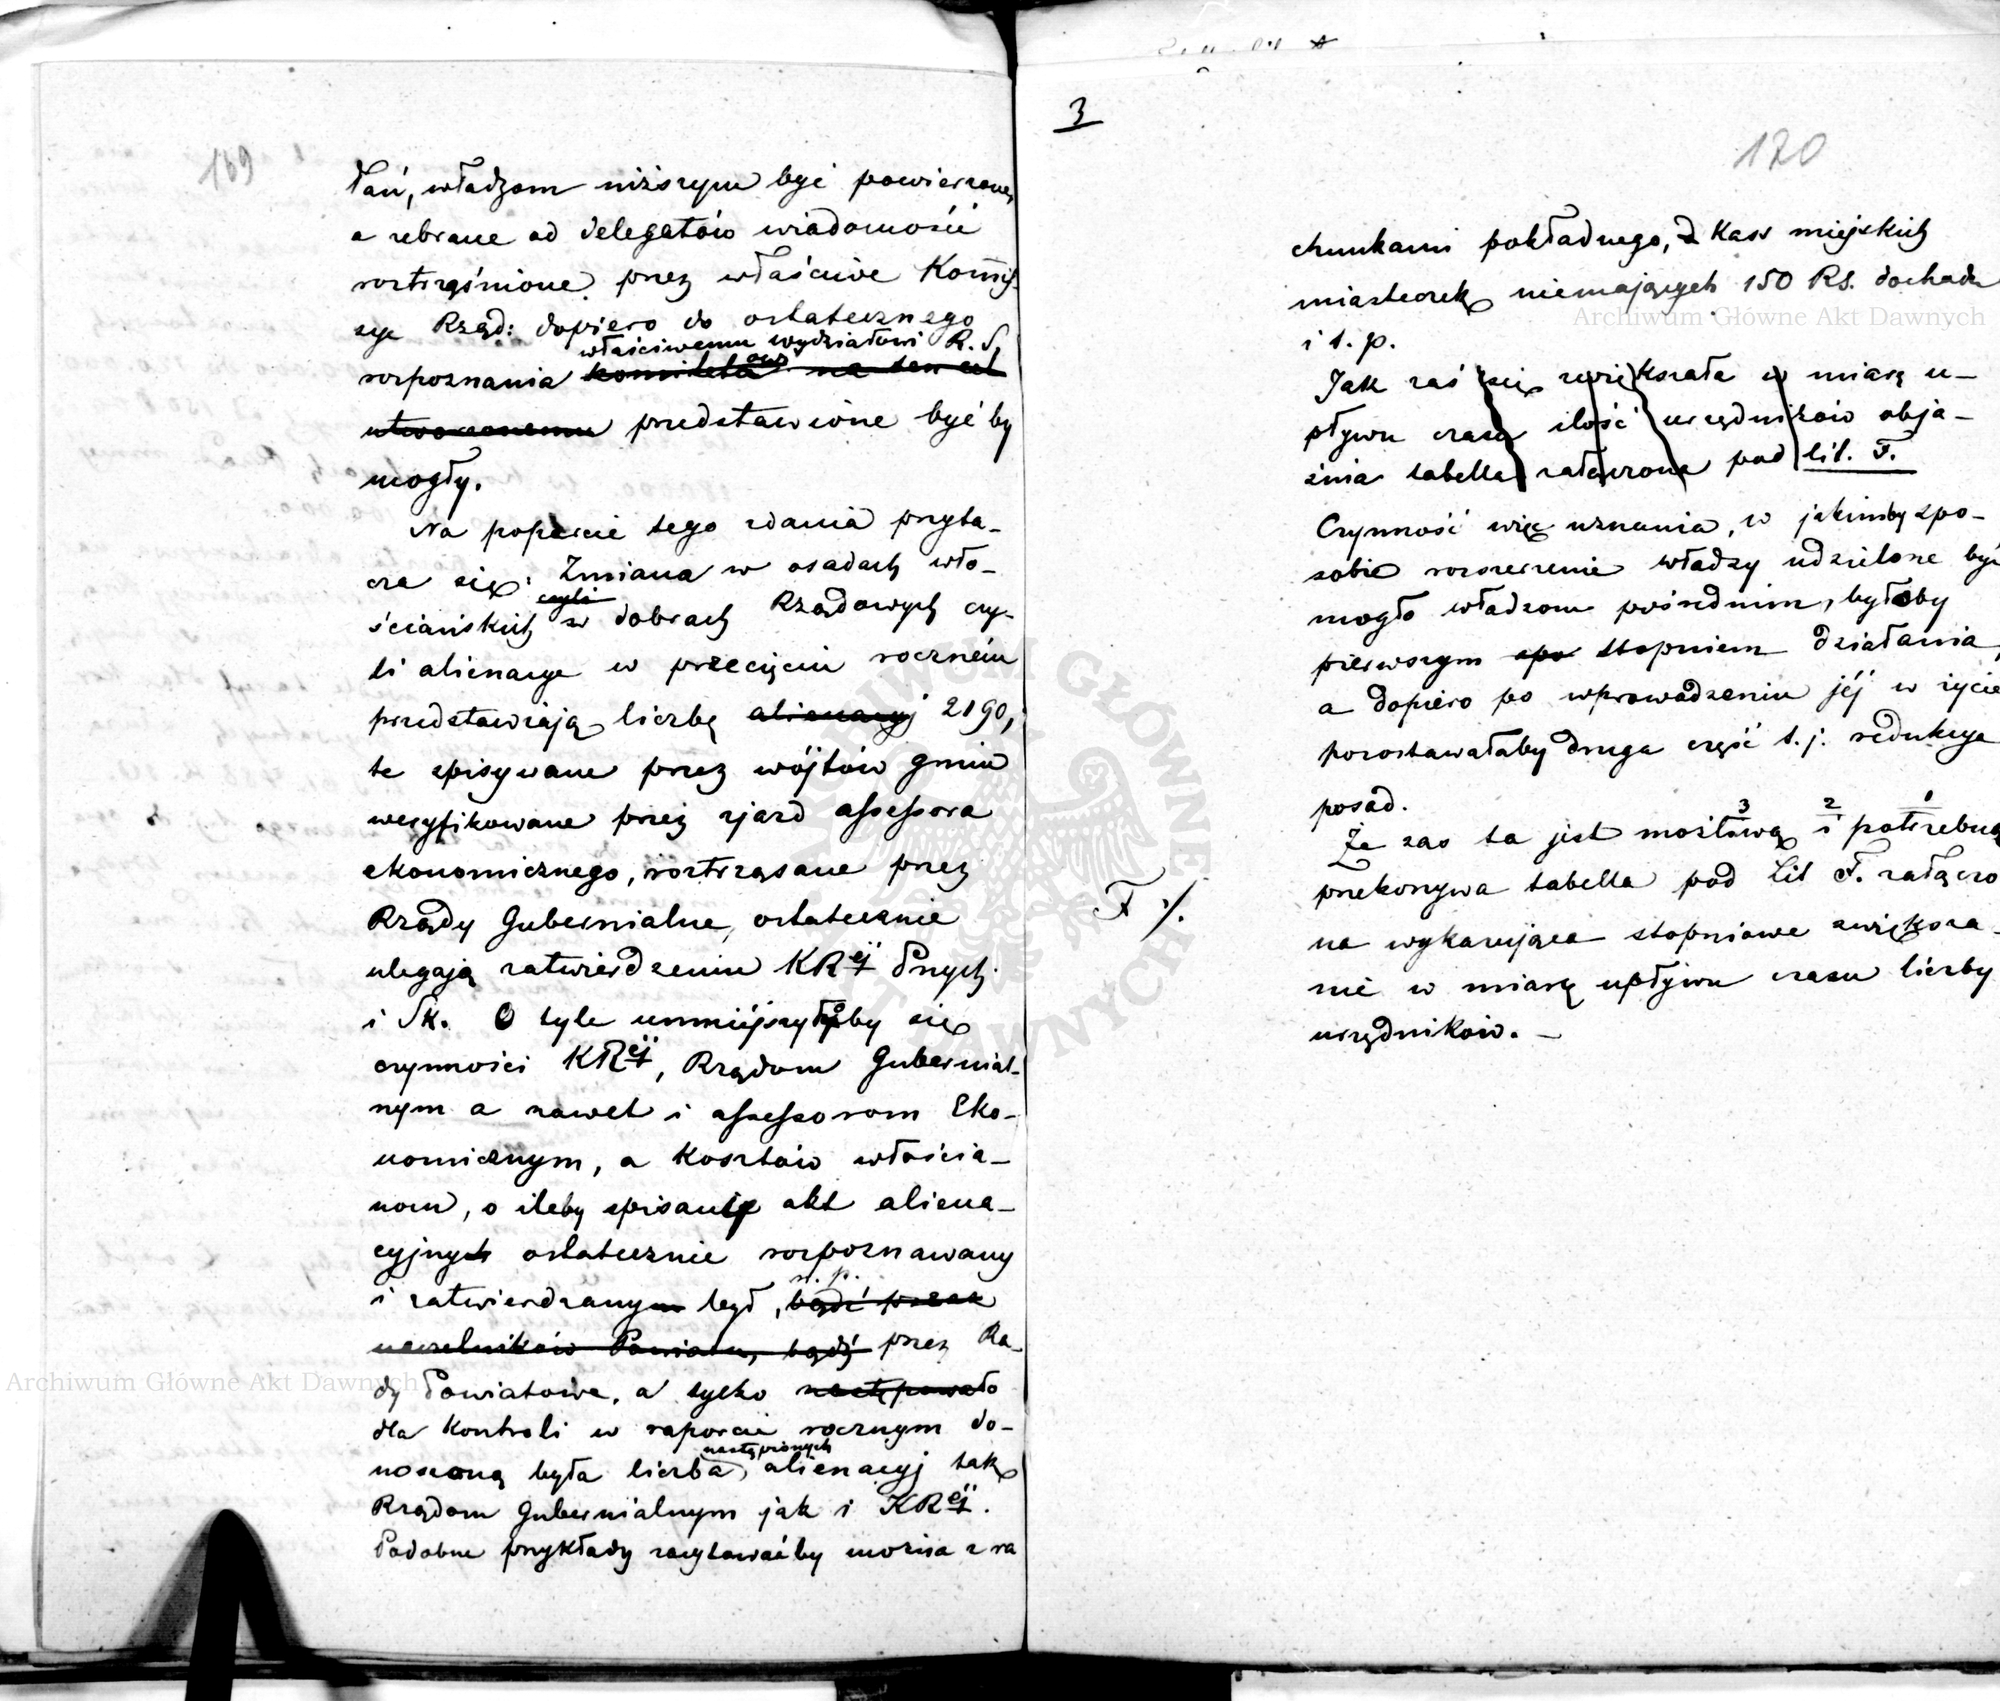 169
łań, władzom niższym być powierzone,
a zebrane od delegatów wiadomości
roztrząśnione przez właściwe Kommis-
sye Rząd: dopiero do ostatecznego
właściwemu wydziałowi R. S.
rozpoznania komitetowi na ten cel
utworzonemu przedstawione być by
mogły.
Na poparcie tego zdania przyta-
cza się: Zmiana w osadach wło-
czyli
ściańskich w dobrach Rządowych czy-
li alienacye w przecięciu roczném
przedstawiają liczbę alienacyj 2190,
te spisywane przez wójtów gmin
weryfikowane przez zjazd assessora
ekonomicznego, roztrząsane przez
Rządy Gubernialne, ostatecznie
ulegają zatwierdzeniu KRéj Pnych
i Sk. O tyle umniejszyłyby się
czynności KRéj, Rządom Gubernial-
nym a nawet i assessorom Eko-
nomicznym, a kosztów włościa-
nom, o ileby spisanie akt aliena-
cyjnych ostatecznie rozpoznawany
n. p.
i zatwierdzanym był, bądź przez
naczelników Powiatu, bądź przez Ra-
dy Powiatowe, a tylko następowało
dla kontroli w raporcie rocznym do-
nastąpionych
noszoną była liczba, alienacyj tak
Rządom Gubernialnym jak i KRéj.
Podobne przykłady zacytowaćby można z ra
3
170
chunkami pokładnego, z Kass miejskich
miasteczek niemających 150 RS. dochodu
i t. p.
Jak zaś się zwiększała w miarę u-
pływu czasu ilość urzędników obja-
śnia tabella załączona pod lit. F.
Czynność więc uznania, w jakimby spo-
sobie rozszerzenie władzy udzielone być
mogło władzom pośrednim, byłoby
pierwszym spo stopniem działania,
a dopiero po wprowadzeniu jéj w życie
pozostawałaby druga część t. j. redukcya
posad.
3 2 1
Że zas ta jest możliwą i potrzebną
F ./.
przekonywa tabella pod Lit F. załączo
na wykazująca stopniowe zwiększa-
nie w miarę upływu czasu liczby
urzędników. -
Archiwum Główne Akt Dawnych
Archiwum Główne Akt Dawnych
ARCHIWUM GŁÓWNE AKT DAWNYCH